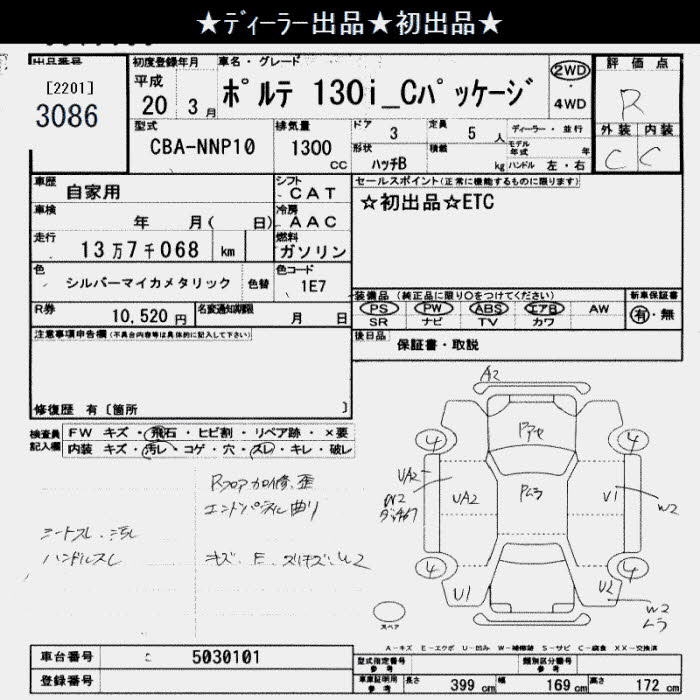 ★ディーラー出品★初出品★
出品番号
[2201]
3086
初度登録年月
平成
20 3月
車名・グレード
ポルテ 130i_Cパッケージ
2WD
・
4WD
評価点
R
外装 内装
C C
型式
CBA-NNP10
排気量
1300
cc
ドア 3
定員 5 人
形状
ハッチB
積載
kg
ディーラー・並行
モデル年式 年
ハンドル 左・右
車歴
自家用
シフト
CAT
車検
年 月( 日)
冷房
AAC
走行
13万7千068 km
燃料
ガソリン
色
シルバーマイカメタリック 色替
色コード
1E7
R券
10,520円
名変通知期限
月 日
セールスポイント(正常に機能するものに限ります)
☆初出品☆ETC
装備品(純正品に限り○をつけてください)
PS PW ABS エアB AW
SR ナビ TV カワ
新車保証書
有・無
後日品
保証書・取説
注意事項申告欄(不具合内容等は具体的に記入して下さい)
修復歴 有〔箇所 〕
検査員記入欄
FW キズ・飛石・ヒビ割・リペア跡・×要
内装 キズ・汚レ・コゲ・穴・スレ・キレ・破レ
Rフロア加修、歪
エンドパネル曲り
シートスレ、汚レ
ハンドルスレ
キズ、E、スリキズ、W2
A2
4 4
Pアセ
UA2
W2
UA2
Pムラ
U1
W2
4 4
U1
U2
W2
ムラ
スペア
A-キズ E-エクボ U-凹み W-補修跡 S-サビ C-腐食 XX-交換済
車台番号 5030101
登録番号
型式指定番号
参考
類別区分番号
参考
車庫証明用
参考
長さ 399 cm 幅 169 cm 高さ 172 cm